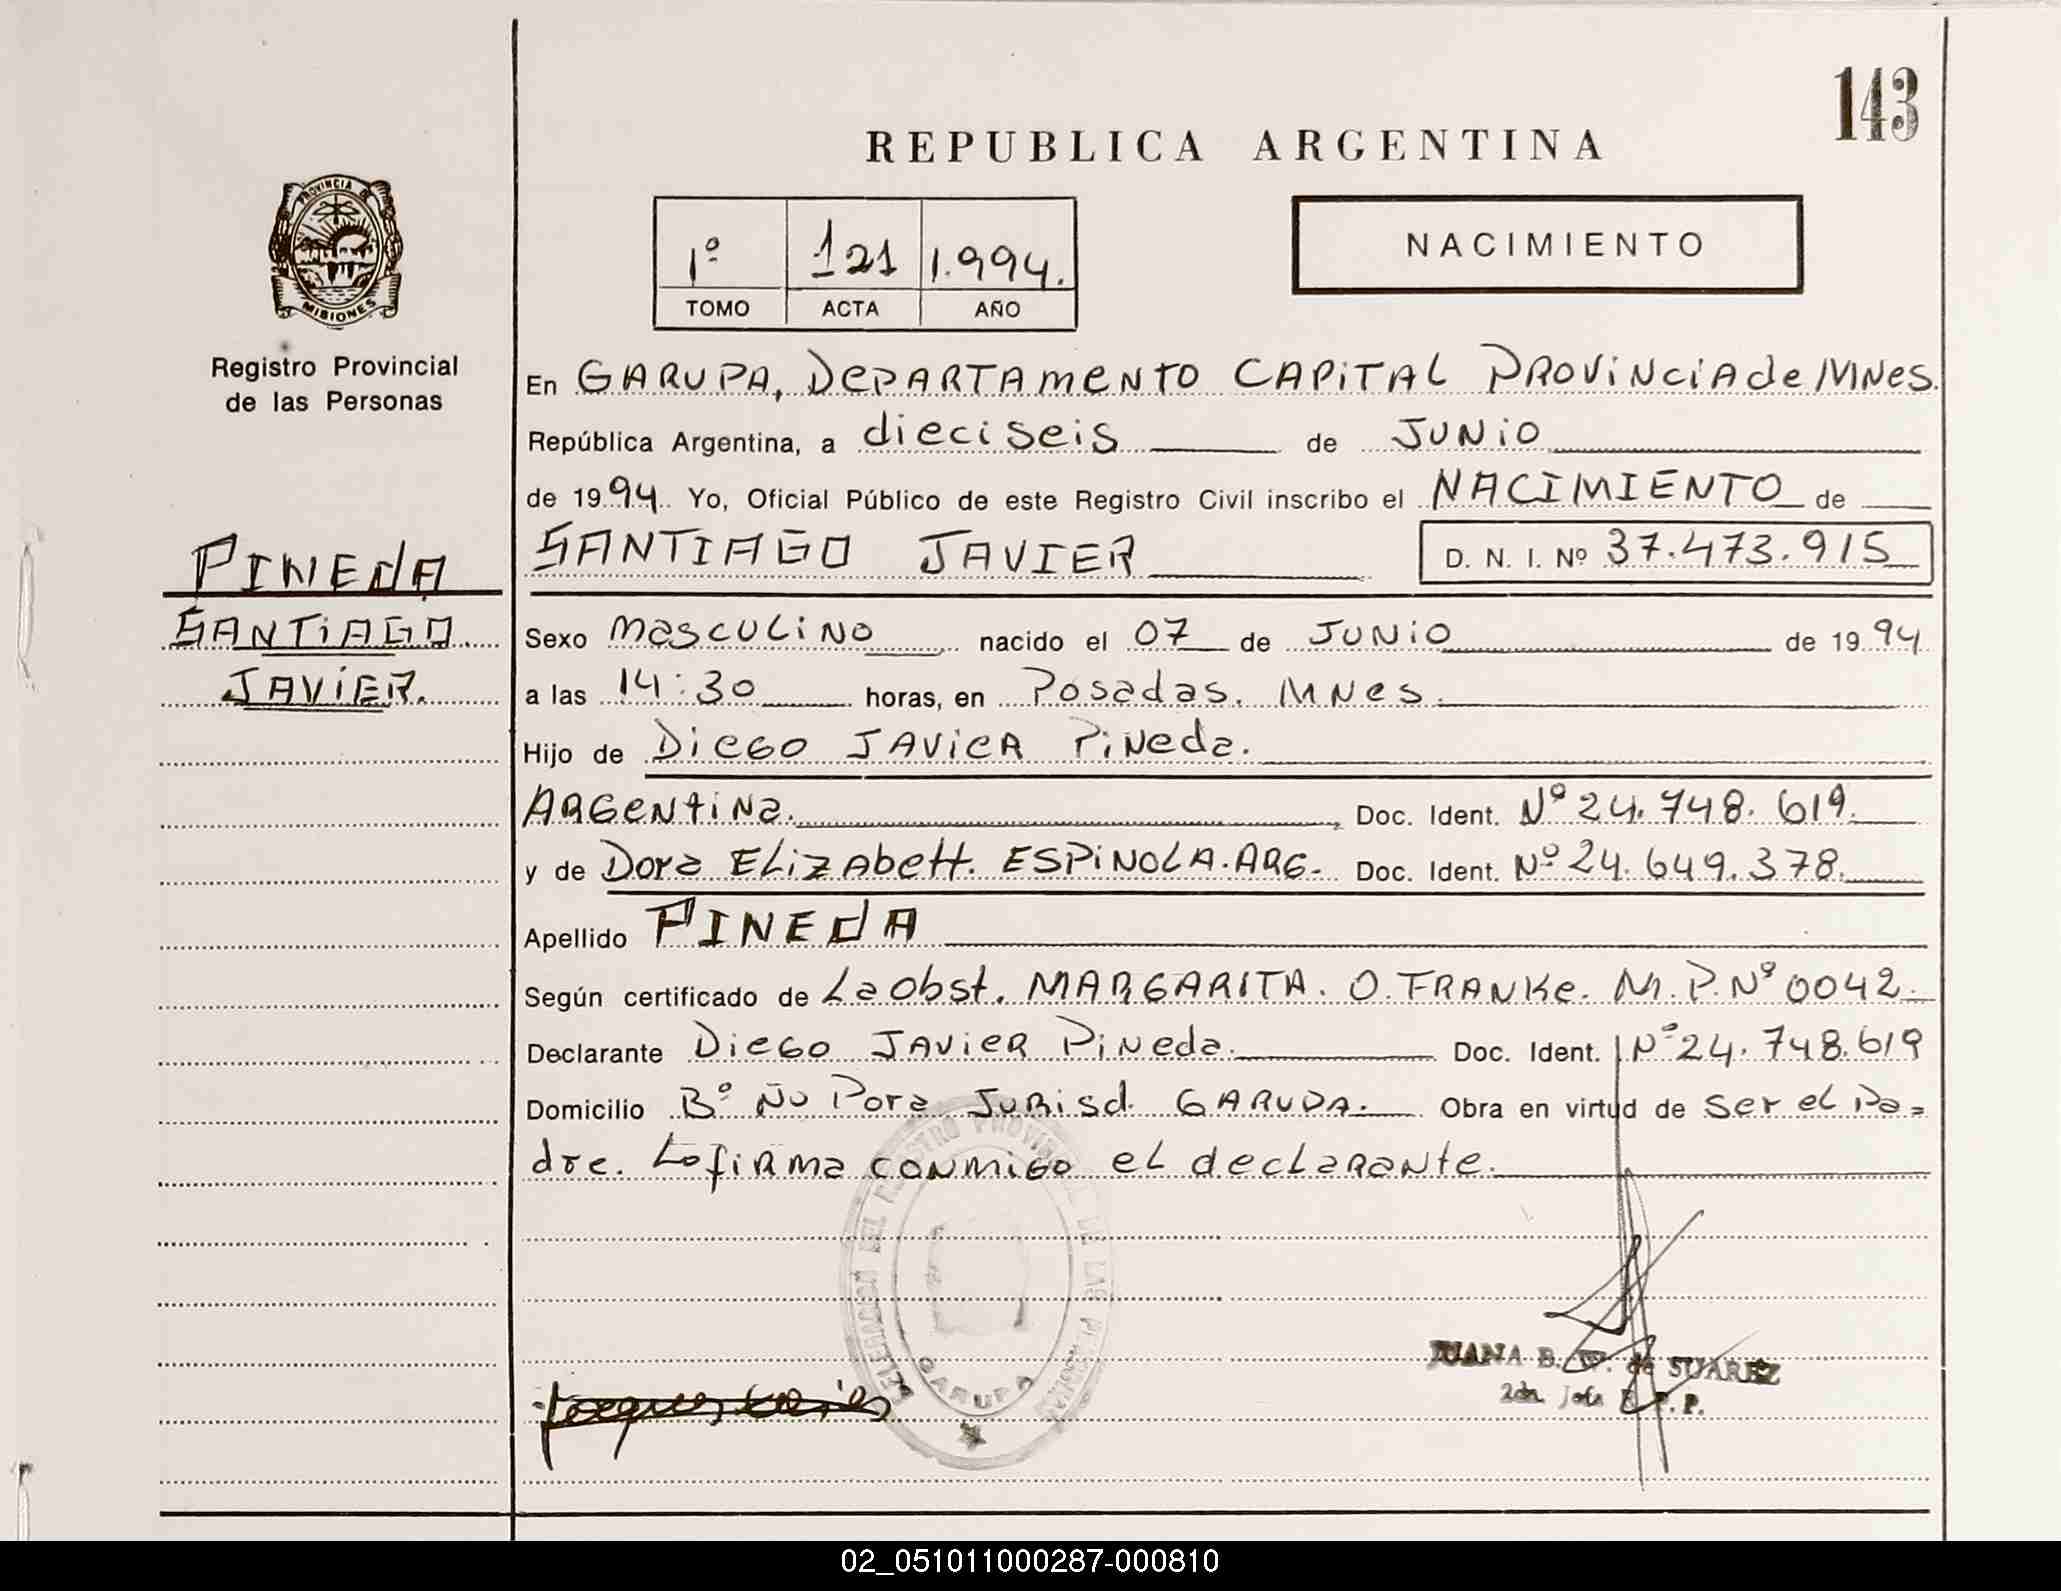 143
REPUBLICA ARGENTINA
PROVINCIA DE
MISIONES
1º 121 1.994.
TOMO ACTA AÑO
NACIMIENTO
Registro Provincial
de las Personas
En GARUPA, DEPARTAMENTO CAPITAL PROVINCIA de MNes.
República Argentina, a dieciseis de JUNIO
de 1994. Yo, Oficial Público de este Registro Civil inscribo el NACIMIENTO de
SANTIAGO JAVIER D. N. I. Nº 37.473.915
PINEDA
SANTIAGO
JAVIER.
Sexo masculino nacido el 07 de JUNIO de 1994
a las 14:30 horas, en Posadas. MNes.
Hijo de Diego JAVIER Pineda.
ARGENTINA. Doc. Ident. Nº 24.748.619.
y de Dora ELIZAbett. ESPINOLA. ARG. Doc. Ident. Nº 24.649.378.
Apellido PINEDA
Según certificado de La Obst. MARGARITA. O. FRANKe. M.P. Nº 0042.
Declarante Diego JAVIER Pineda. Doc. Ident. Nº 24.748.619
Domicilio Bº Ñu Pora JURisd. GARUPA. Obra en virtud de ser el Pa=
dre. Lo firma conmigo el declarante.
GARUPA
JUANA B. de SUAREZ
02_051011000287-000810